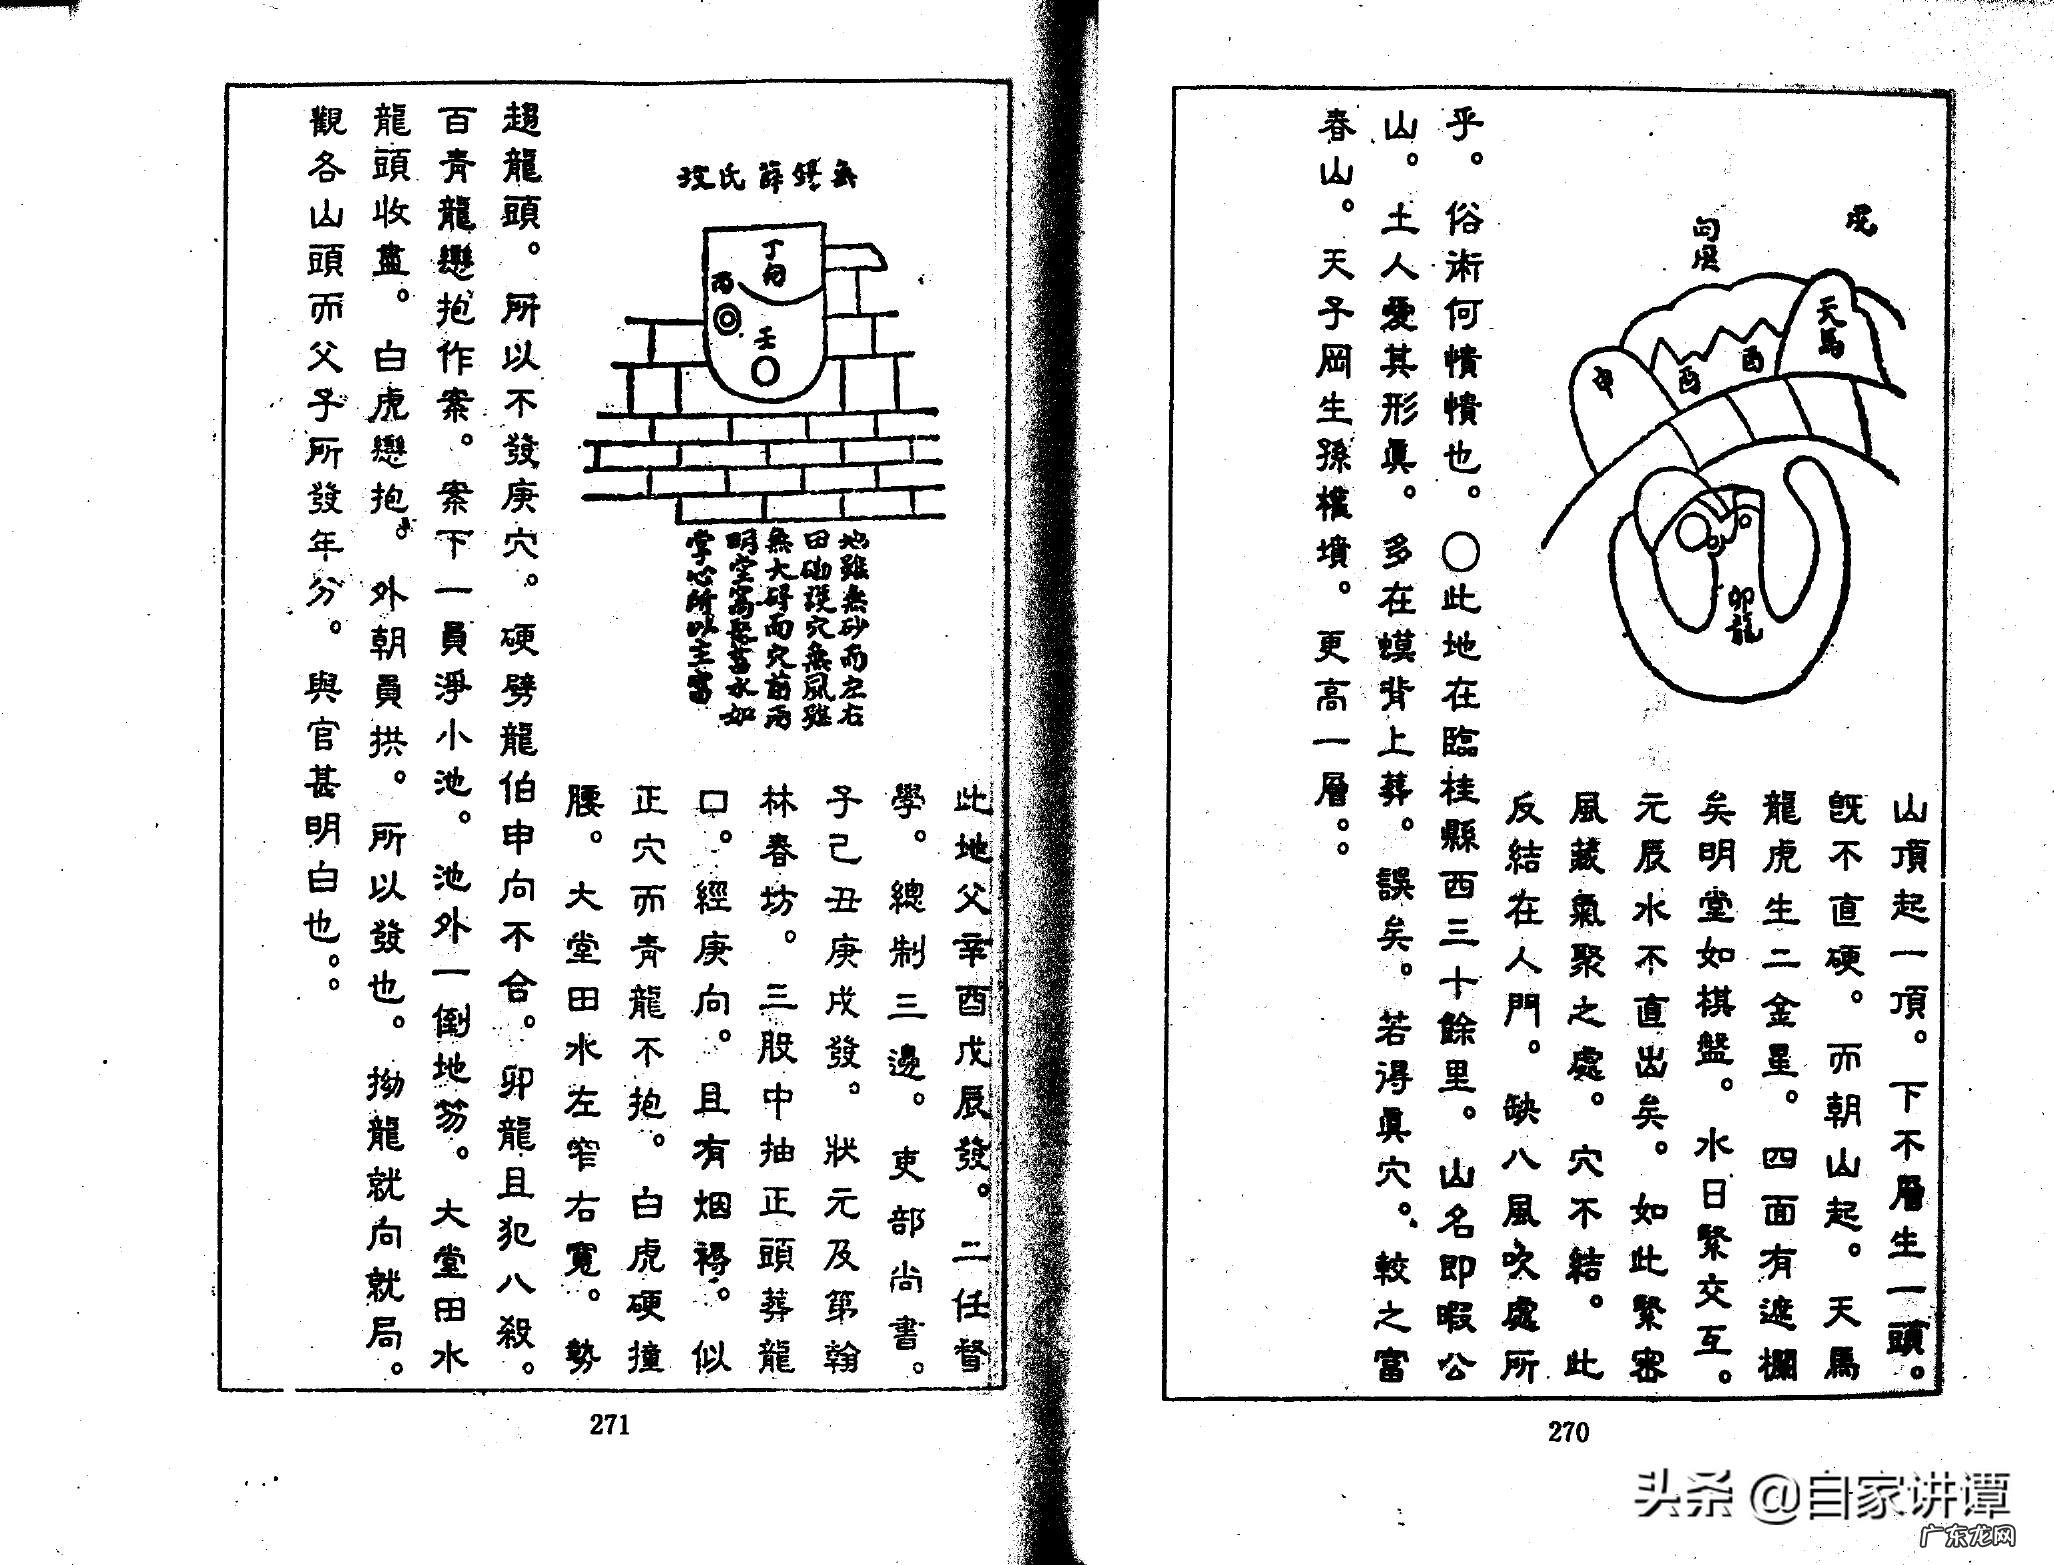 虎
向居
天馬
酉
酉
申
卯龍
山頂起一頂。下不層生一頭。
既不直硬。而朝山起。天馬
龍虎生二金星。四面有遮欄
矣明堂如棋盤。水日緊交互。
元辰水不直出矣。如此緊密
風藏氣聚之處。穴不結。此
反結在人門。缺八風吹處所
乎。俗術何憒憒也。〇此地在臨桂縣西三十餘里。山名即暇公
山。土人愛其形眞。多在蟆背上葬。誤矣。若得眞穴。較之富
春山。天子岡生孫權墳。更高一層。。
270
無錫薛氏墳
丁向
丙
壬
地雖無砂而左右
田砂護穴無風雖
無大碍而穴前兩
明堂窩聚蓄水如
掌心所以主富
此地父辛酉戊辰發。二任督
學。總制三邊。吏部尚書。
子己丑庚戌發。狀元及第翰
林春坊。三股中抽正頭葬龍
口。經庚向。且有烟褥。似
正穴而靑龍不抱。白虎硬撞
腰。大堂田水左窄右寬。勢
趨龍頭。所以不發庚穴。硬劈龍伯申向不合。卯龍且犯八殺。
百青龍戀抱作案。案下一員淨小池。池外一倒地笏。大堂田水
龍頭收盡。白虎戀抱。外朝員拱。所以發也。拗龍就向就局。
觀各山頭而父子所發年分。與官甚明白也。。
271
头条 @自家讲谭
广东龙网